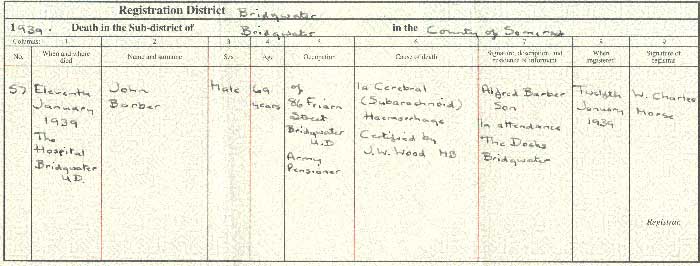 Registration District Bridgwater
1939. Death in the Sub-district of Bridgwater in the County of Somerset
Columns: 1 2 3 4 5 6 7 8 9
No. When and where died Name and surname Sex Age Occupation Cause of death Signature, description, and residence of informant When registered Signature of registrar
57
Eleventh
January
1939
The
Hospital
Bridgwater
U.D.
John
Barber
Male
69
years
of
86 Friarn
Street
Bridgwater
U.D
Army
Pensioner
1a Cerebral
(Subarachnoid)
Haemorrhage
Certified by
J.W. Wood MB
Alfred Barber
Son
In attendance
The Docks
Bridgwater
Twelfth
January
1939
W. Charles
Morse
Registrar.